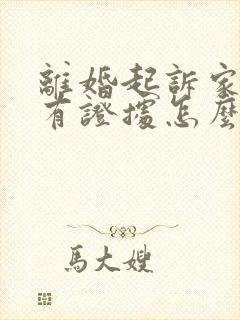 離婚起訴家
有證據怎麼
馬大嫂